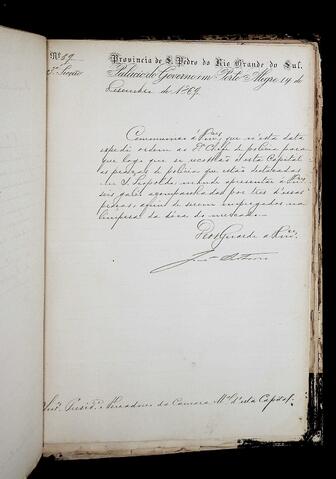 Nº 69
Provincia de S. Pedro do Rio Grande do Sul.
3ª Secção
Palacio do Governo em Porto Alegre, 14 de
Dezembro de 1869.
Communico a Vmces que n'esta data
expedi ordem ao Dr Chefe de policia para
que logo que se recolhão a esta Capital
as praças de policia que estão destacadas
em S. Leopoldo, mande apresentar a Vmces
seis galés acompanhados por tres d'essas
praças, afim de serem empregados na
limpesa da dóca do mercado.
Deos Guarde a Vmces
Snrs. Presidte e Vereadores da Camara Mal d'esta Capital.